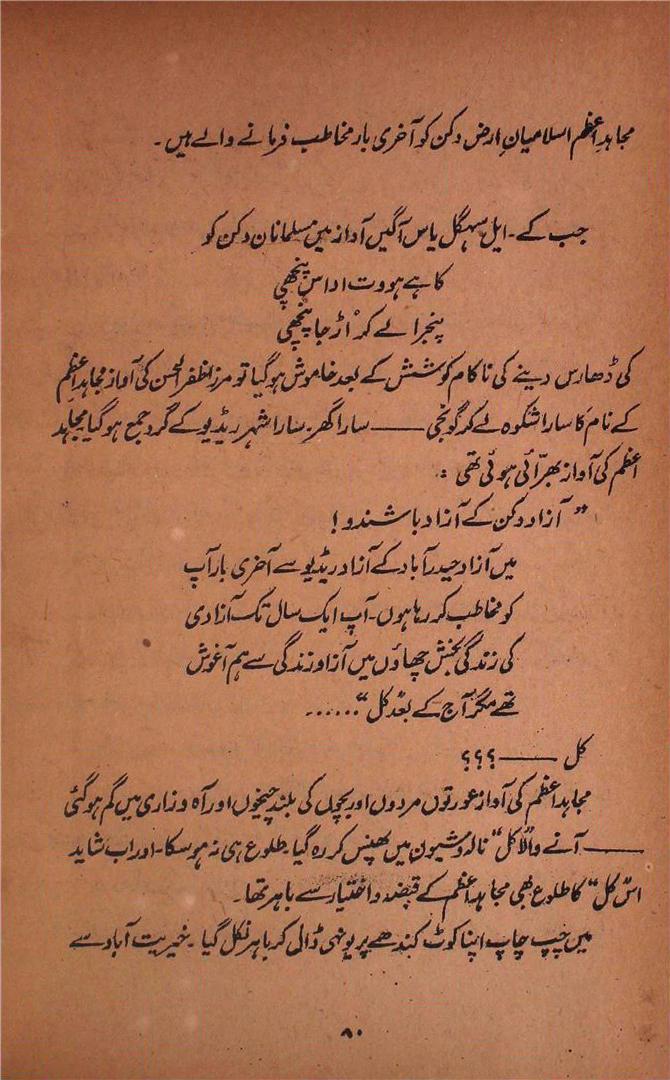 مجاہدِ اعظم اسلامیانِ ارضِ دکن کو آخری بار مخاطب فرمانے والے ہیں۔
جب کے۔ ایل سہگل یاس آگیں آواز میں مسلمانان دکن کو
کاہے ہووت اداس پنچھی
پنجرا لے کر اُڑ جا پنچھی
کی ڈھارس دینے کی ناکام کوشش کے بعد خاموش ہو گیا تو مرزا ظفر الحسن کی آواز مجاہد اعظم
کے نام کا سارا شکوہ لے کر گونجی ——— سارا گھر۔ سارا شہر ریڈیو کے گرد جمع ہو گیا مجاہد
اعظم کی آواز بھرّائی ہوئی تھی :
” آزاد دکن کے آزاد باشندو !
میں آزاد حیدرآباد کے آزاد ریڈیو سے آخری بار آپ
کو مخاطب کر رہا ہوں۔ آپ ایک سال تک آزادی
کی زندگی بخش چھاؤں میں آزاد زندگی سے ہم آغوش
تھے مگر آج کے بعد کل “......
کل ——— ؟؟؟
مجاہد اعظم کی آواز عورتوں مردوں اور بچوں کی بلند چیخوں اور آہ و زاری میں گم ہو گئی
——— آنے والا ”کل“ نالہ و شیون میں پھنس کر رہ گیا۔ طلوع ہی نہ ہو سکا۔ اور اب شاید
اس ”کل“ کا طلوع بھی مجاہد اعظم کے قبضہ و اختیار سے باہر تھا۔
میں چپ چاپ اپنا کوٹ کندھے پر یونہی ڈال کر باہر نکل گیا۔ خیریت آباد سے
۸۰